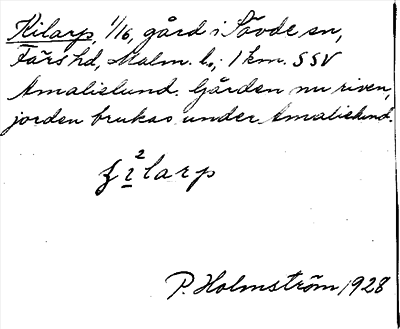 Kilarp, 1/16, gård i Sövde sn,
Färs hd, Malm. l., 1 km. SSV
Amalielund. Gården nu riven,
jorden brukas under Amalielund.
2
ʒilarp
P. Holmström 1928